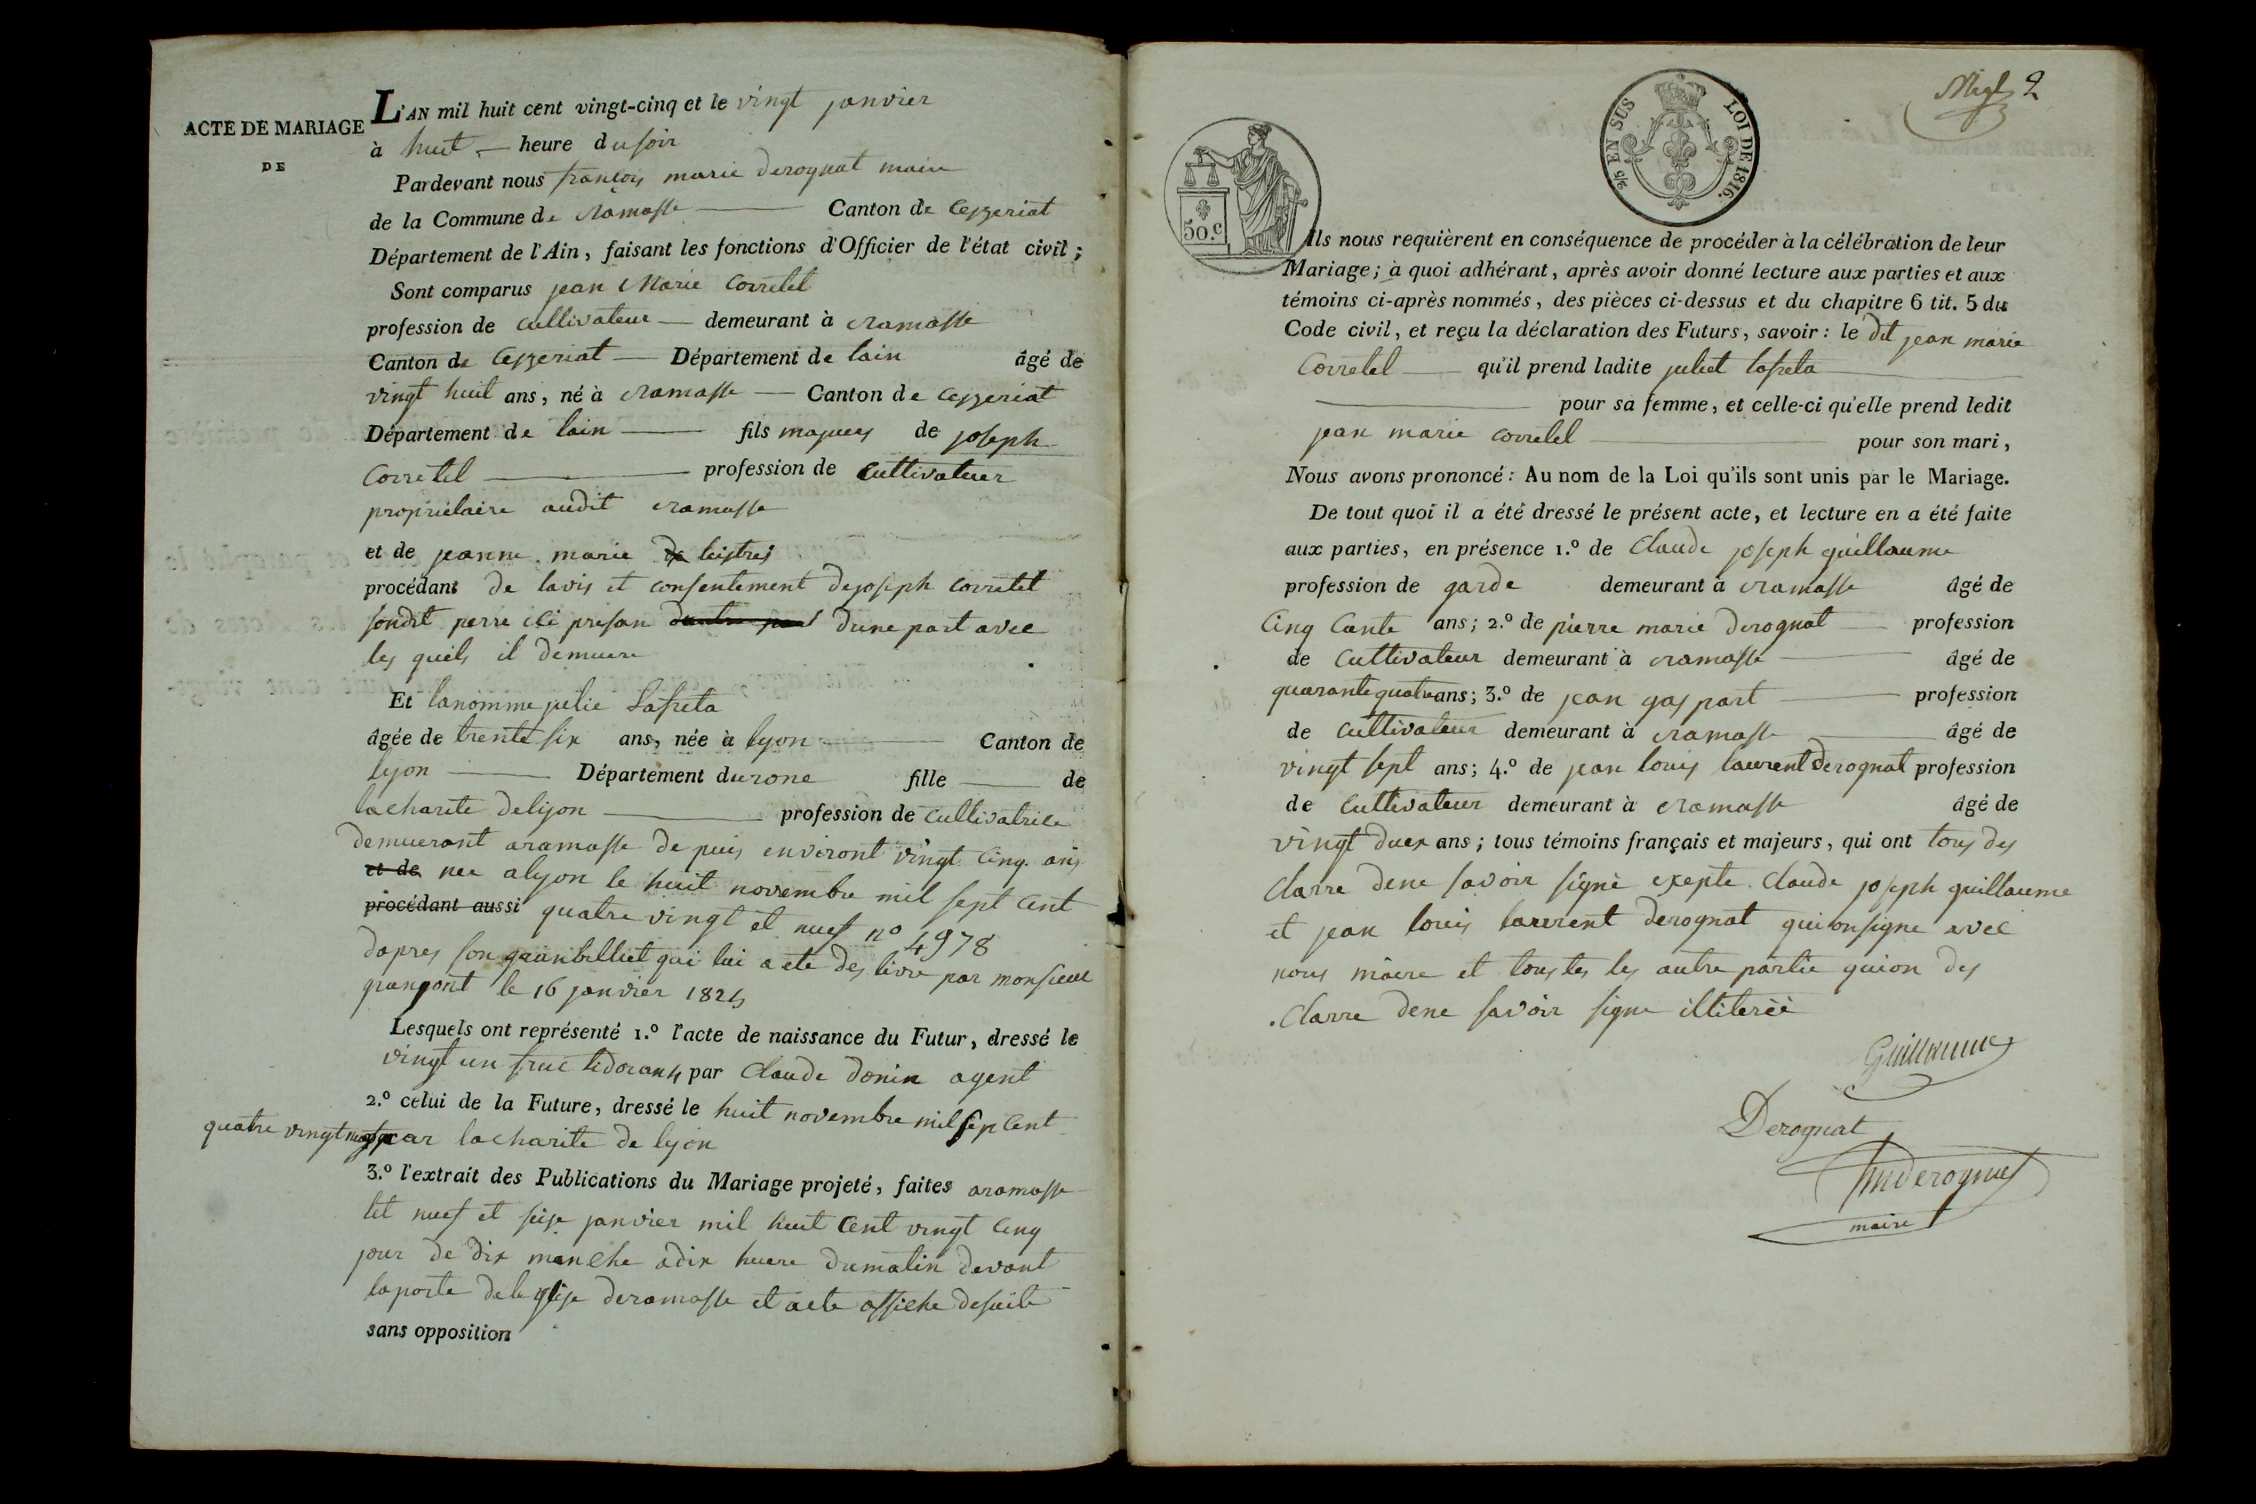 ACTE DE MARIAGE
DE
L'AN mil huit cent vingt-cinq et le vingt janvier
à huit heure du soir
Pardevant nous françois marie derognat maire
de la Commune de ramasse Canton de Ceyzeriat
Département de l'Ain, faisant les fonctions d'Officier de l'état civil;
Sont comparus jean Marie Corretel
profession de cultivateur demeurant à ramasse
Canton de Ceyzeriat Département de lain âgé de
vingt huit ans, né à ramasse Canton de Ceyzeriat
Département de lain fils majeur de joseph
Corretel profession de cultivateur
propriétaire audit ramasse
et de jeanne marie
procédant de lavis et consentement de joseph corretel
sondit perre ici presan dune part avec
les quels il demuere
Et lanomme julie Lafreta
âgée de trente six ans, née à lyon Canton de
lyon Département du rone fille de
lacharite de lyon profession de cultivatrice
demuerant aramasse de puis environt vingt cinq ans
et de nee alyon le huit novembre mil sept cent
procédant aussi quatre vingt et nuef n° 4978
dapres son qui lui a ete des livre par monsieur
le 16 janvier 1825
Lesquels ont représenté 1.º l'acte de naissance du Futur, dressé le
vingt un fruc tidoran 4 par Claude donin agent
2.º celui de la Future, dressé le huit novembre mil sep cent
quatre vingt nuef par lacharite de lyon
3.º l'extrait des Publications du Mariage projeté, faites aramasse
let nuef et seise janvier mil huit cent vingt cinq
jour de dix manche adix huere dumatin devant
laporte de leglise deramasse et acte affiche desuite
sans opposition
2
2/5 EN SUS LOI DE 1816.
50.c
Ils nous requièrent en conséquence de procéder à la célébration de leur
Mariage; à quoi adhérant, après avoir donné lecture aux parties et aux
témoins ci-après nommés, des pièces ci-dessus et du chapitre 6 tit. 5 du
Code civil, et reçu la déclaration des Futurs, savoir: le dit jean marie
Corretel qu'il prend ladite juliet lafreta
pour sa femme, et celle-ci qu'elle prend ledit
jean marie corretel pour son mari,
Nous avons prononcé: Au nom de la Loi qu'ils sont unis par le Mariage.
De tout quoi il a été dressé le présent acte, et lecture en a été faite
aux parties, en présence 1.º de Claude joseph guillaume
profession de garde demeurant à ramasse âgé de
Cinq Cante ans; 2.º de pierre marie derognat profession
de cultivateur demeurant à ramasse âgé de
quarante quatre ans; 3.º de jean gaspart profession
de cultivateur demeurant à ramasse âgé de
vingt sept ans; 4.º de jean louis laurent derognat profession
de cultivateur demeurant à ramasse âgé de
vingt duex ans; tous témoins français et majeurs, qui ont tous des
clarre dene savoir signé exepte Claude joseph guillaume
et jean louis laurent derognat qui on signe avec
nous maire et toustes les autre partie quion des
clarre dene savoir signe illiterèè
Guillaume
Derognat
fmderognat
maire